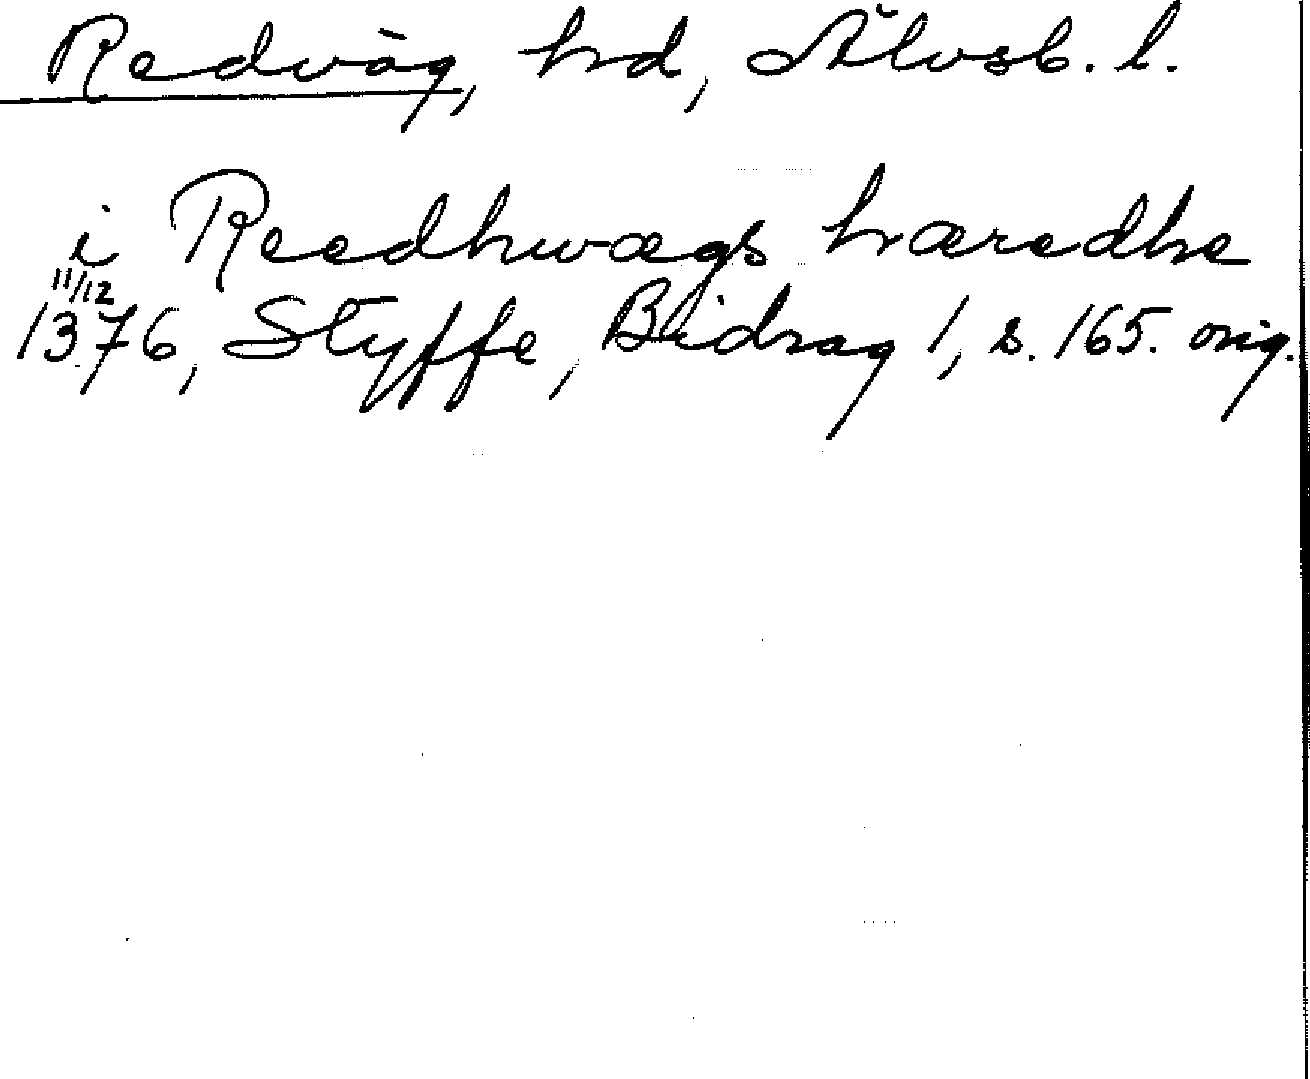 Redväg, hd, Älvsb. l.
i Reedhwægs hæredhe
11/12
1376, Styffe, Bidrag 1, s. 165. orig.